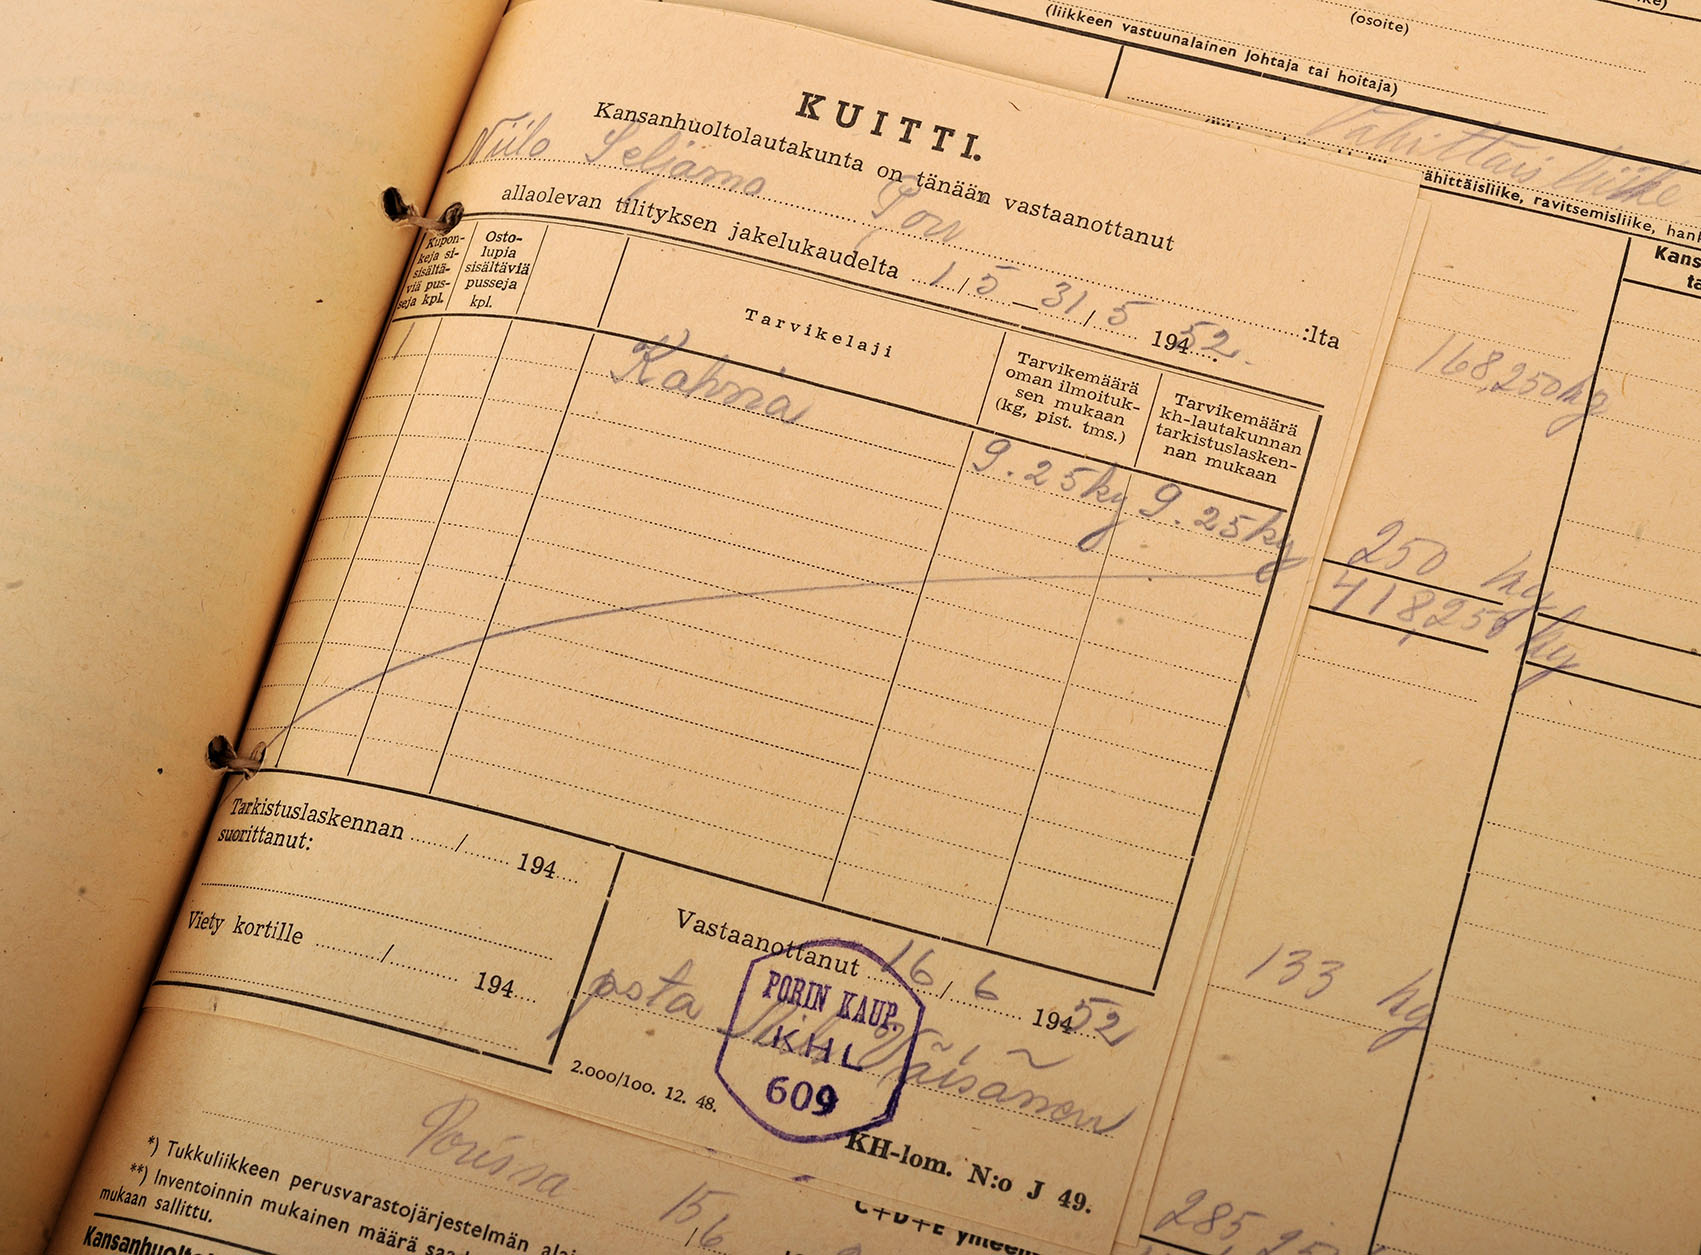 (liikkeen vastuunalainen johtaja tai hoitaja)
(osoite)
Vähittäisliike
ähittäisliike, ravitsemisliike, hank
KUITTI.
Kansanhuoltolautakunta on tänään vastaanottanut
Niilo Seljämo Pori :lta
allaolevan tilityksen jakelukaudelta 1/5 — 31/5 194 52.
Kupon-
keja si-
sisältä-
viä pus-
seja kpl.
Osto-
lupia
sisältäviä
pusseja
kpl.
Tarvikelaji
Tarvikemäärä
oman ilmoituk-
sen mukaan
(kg, pist. tms.)
Tarvikemäärä
kh-lautakunnan
tarkistuslasken-
nan mukaan
1 Kahvia 9.25 kg 9.25 kg
Tarkistuslaskennan ....../...... 194....
suorittanut:
Viety kortille ....../...... 194....
Vastaanottanut 16/6 194 52
posta Väisänen
PORIN KAUP.
KHL
609
2.000/100. 12. 48.
KH-lom. N:o J 49.
Kans
ta
168,250 kg
250 kg
418,250 kg
133 kg
285,25
Porissa 15/6
*) Tukkuliikkeen perusvarastojärjestelmän alai
**) Inventoinnin mukainen määrä saa
mukaan sallittu.
C+D+E yhteen
Kansanhuolto